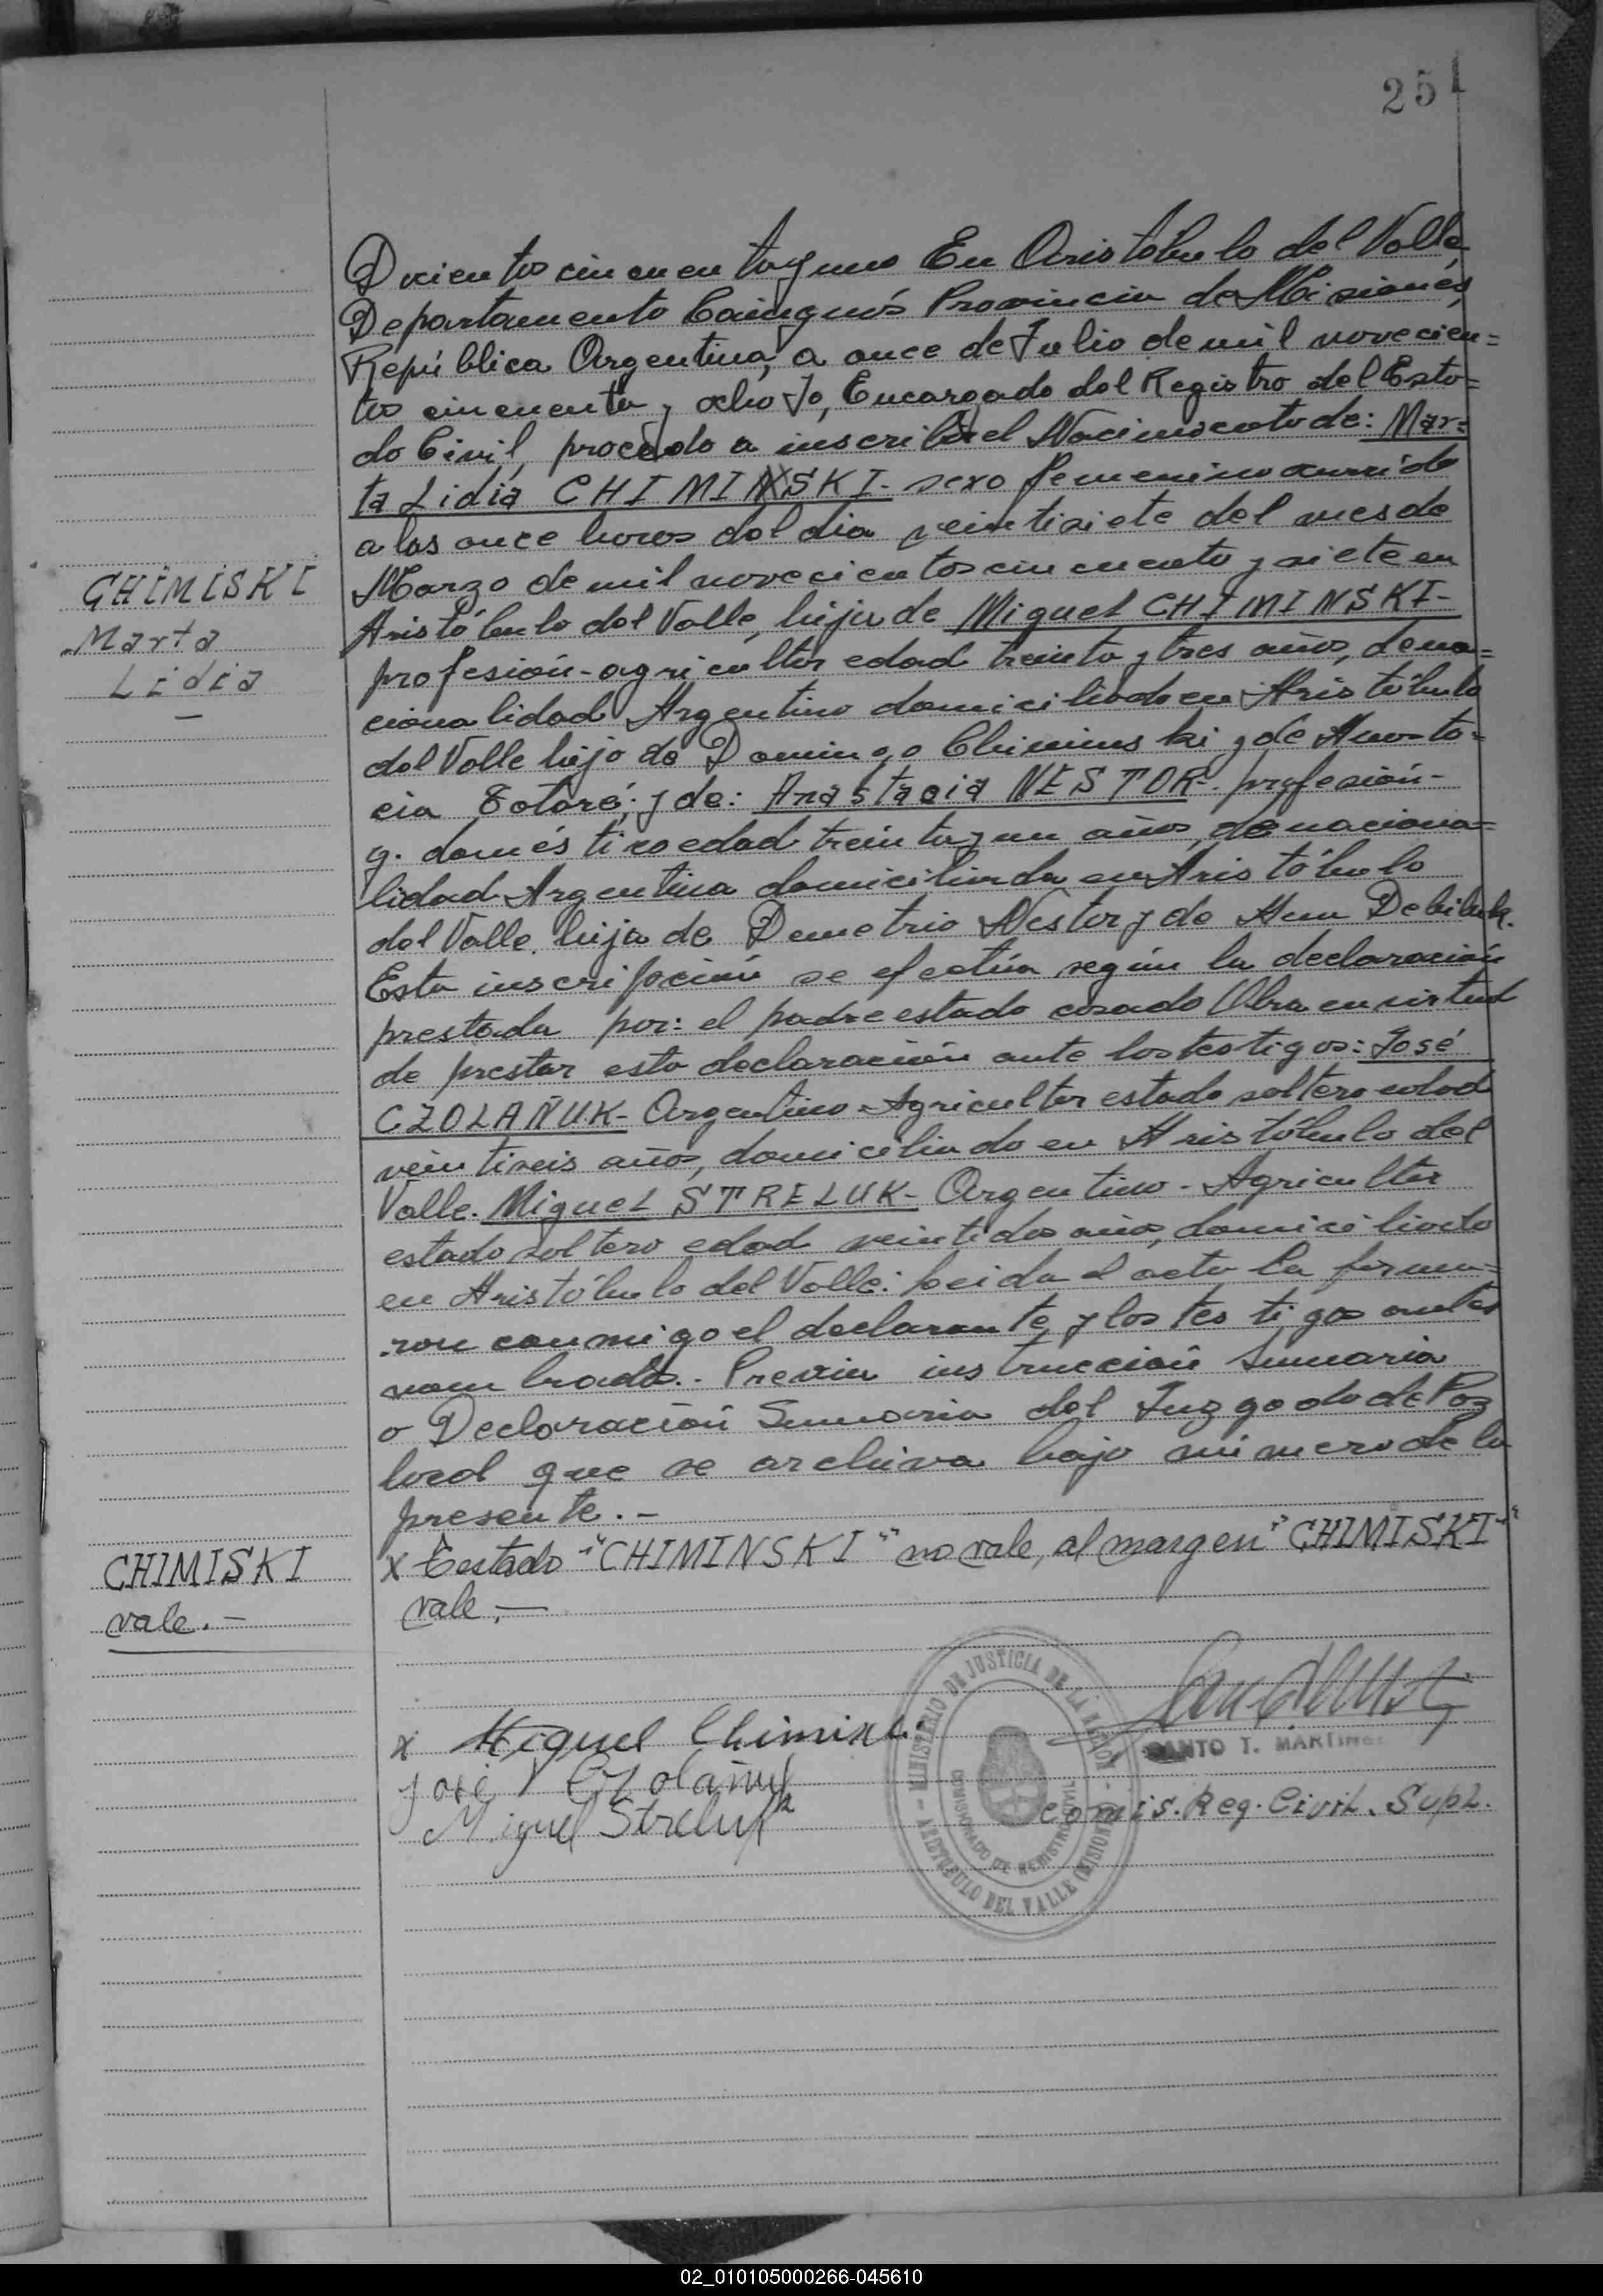 251
Docientos cincuentayuno En Aristóbulo del Valle,
Departamento Cainguás Provincia de Misiones,
República Argentina, a once de Julio de mil novecien=
tos cincuenta y ocho Yo, Encargado del Registro del Esta=
do Civil, procedo a inscribir el Nacimiento de: Mar=
ta Lidia CHIMINSKI- sexo femenino ocurrido
a las once horas del dia veintisiete del mes de
Marzo de mil novecientos cincuenta y siete en
CHIMISKI
Marta
Lidia
Aristóbulo del Valle, hija de Miguel CHIMINSKI-
profesión-agricultor edad treinta y tres años, de na=
cionalidad Argentino domiciliado en Aristóbulo
del Valle hijo de Domingo Chiminski y de Anasta=
cia y de: Anastacia NESTOR- profesión-
q. domésticos edad treinta y un años, de naciona=
lidad Argentina domiciliada en Aristóbulo
del Valle, hija de Demetrio Nestor y de Ana
Esta inscripción se efectúa según la declaración
prestada por: el padre estado casado Obra en virtud
de prestar esta declaración ante los testigos: José
CZOLAÑUK- Argentino-Agricultor estado soltero edad
veintiseis años, domiciliado en Aristóbulo del
Valle. Miguel STRELUK- Argentino-Agricultor
estado soltero edad veintidos años, domiciliado
en Aristóbulo del Valle: Leida el acta la firma=
ron conmigo el declarante y los testigos antes
nombrados.. Previa instrucción Sumaria
o Declaración Sumaria del Juzgado de Paz
local que se archiva bajo número de la
presente.-
x Testado-"CHIMINSKI" no vale, al margen "CHIMISKI"
vale.-
CHIMISKI
vale.-
x Miguel Chimisk
José Czolañuk
Miguel Streluk
SANTO T. MARTINEZ
Comis. Reg. Civil. Supl.
MINISTERIO DE JUSTICIA DE LA NACION
COMISIONADO DE REGISTRO CIVIL
ARISTOBULO DEL VALLE (MISIONES)
02_010105000266-045610